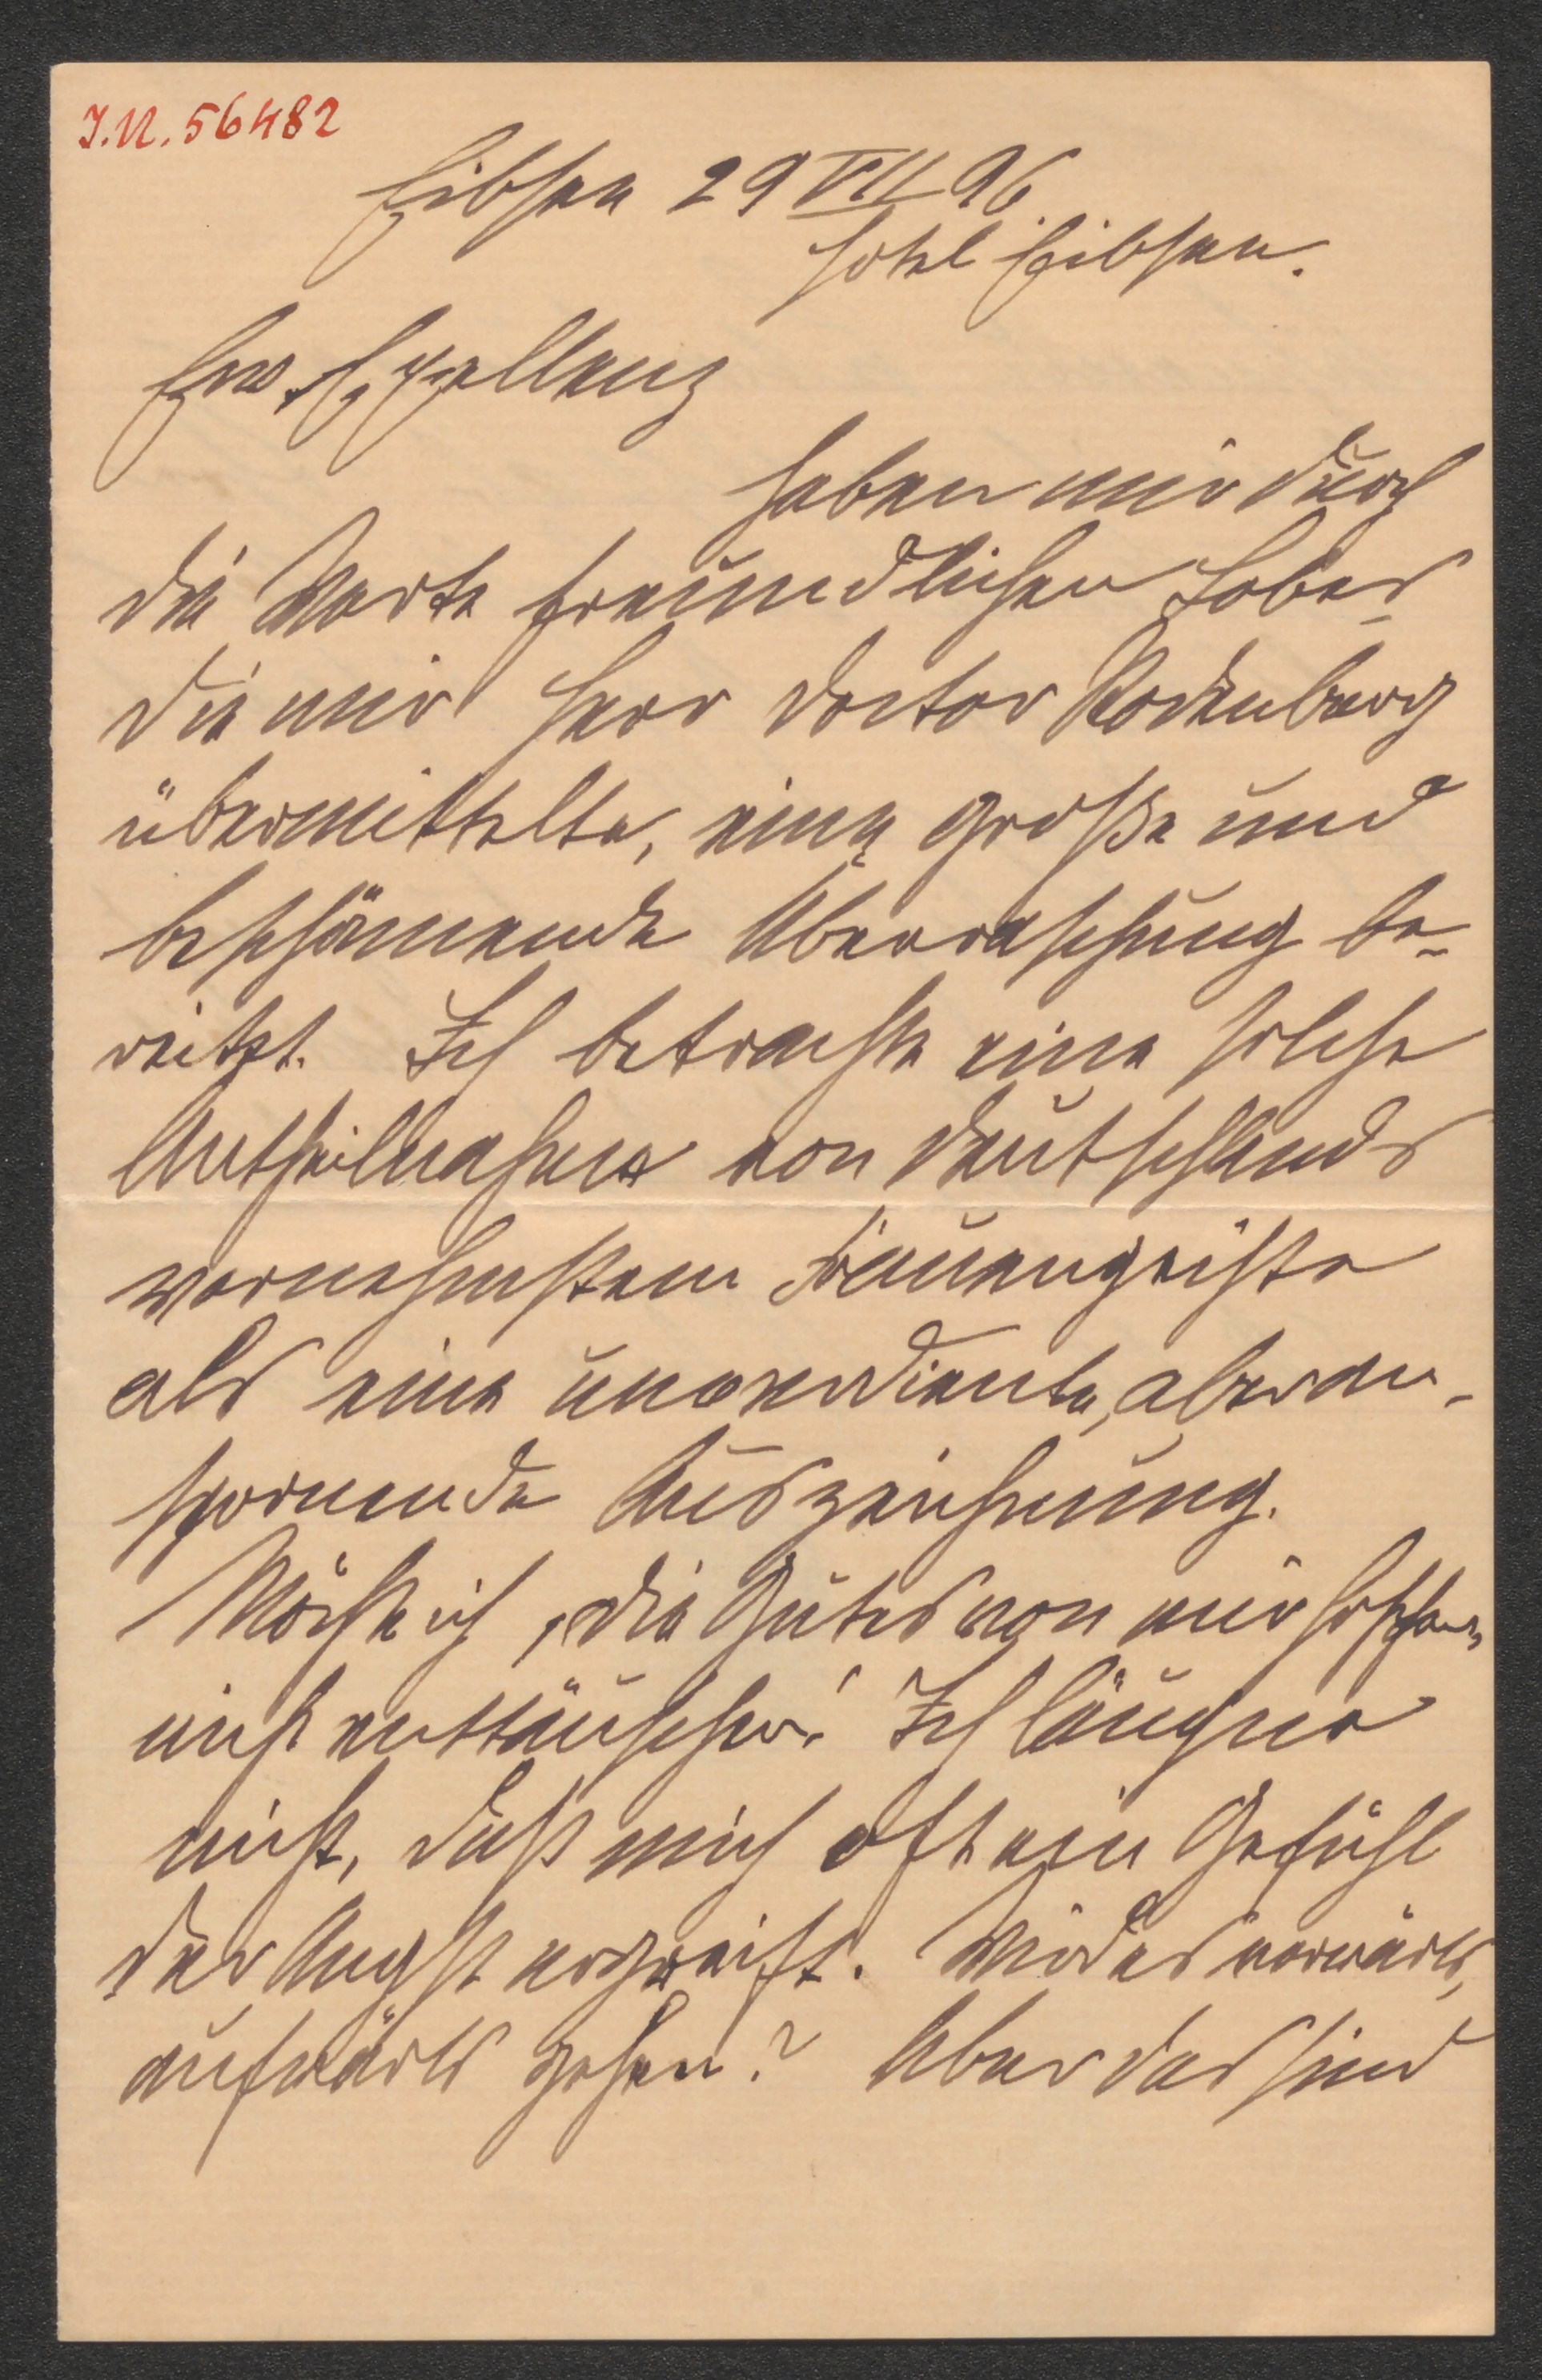 J.N. 56482
Eibsee 29 VII 96
Hotel Eibsee.
Ew. Exzellenz
haben mir durch
die Worte freundlichen Lobes
die mir Herr Doctor Rodenberg
übermittelte, eine große und
beschämende Überraschung be-
reitet. Ich betrachte eine solche
Antheilnahme von Deutschlands
vornehmstem Frauengeiste
als eine unverdiente, aber an-
spornende Auszeichnung.
Möchte ich, die Gutes von mir hoffen,
nicht enttäuschen! Ich läugne
nicht, daß mich oft ein Gefühl
der Angst ergreift. Wird es vorwärts,
aufwärts gehen? Aber das sind